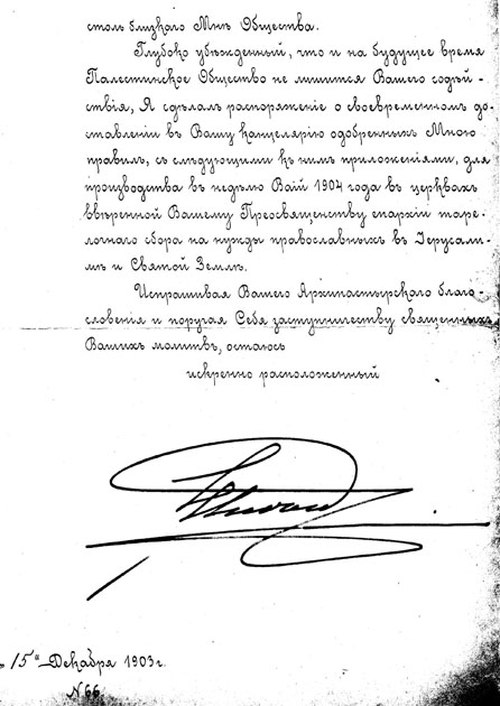 столь близкаго Мнѣ Общества.
Глубоко убѣжденный, что и на будущее время
Палестинское Общество не лишится Вашего содѣй-
ствія, Я сдѣлалъ распоряженіе о своевременномъ до-
ставленіи въ Вашу канцелярію одобренныхъ Мною
правилъ, съ слѣдующими къ нимъ приложеніями, для
производства въ недѣлю Ваій 1904 года въ церквахъ
ввѣренной Вашему Преосвященству епархіи таре-
лочнаго сбора на нужды православныхъ въ Іерусали-
мѣ и Святой Землѣ.
Испрашивая Вашего Архипастырскаго благо-
словенія и поручая Себя заступничеству священныхъ
Вашихъ молитвъ, остаюсь
искренно расположенный
15" Декабря 1903 г.
№ 66